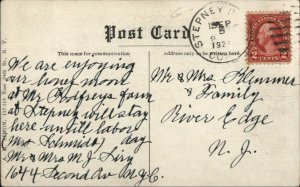 Post Card
THIS SPACE FOR COMMUNICATION
ADDRESS ONLY TO BE WRITTEN HERE
STEPNEY
SEP
5
192
2 CENTS 2
We are enjoying
our honey moon
at Mr Godfreys farm
at Stepney will stay
here untill labor
(Mrs Schmidt) day
Mr & Mrs M J
1644 Second Av N.Y.C.
Mr & Mrs Klemmer
& Family
River Edge
N. J.